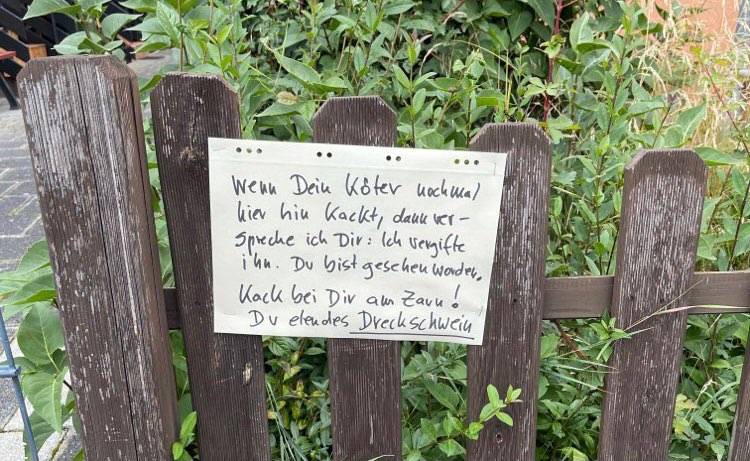 Wenn Dein Köter nochmal
hier hin kackt, dann ver-
spreche ich Dir: Ich vergifte
ihn. Du bist gesehen worden.
Kack bei Dir am Zaun!
Du elendes Dreckschwein